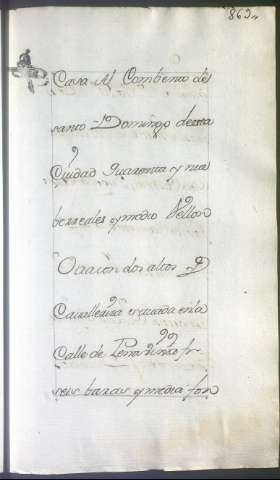 869.
Casa Al Combento de
santo Domingo de esta
Ciudad quarenta y nue
be reales y medio Vellon
Otra con dos altos y
Cavalleriza situada en la
Calle de
seis baras y media fon